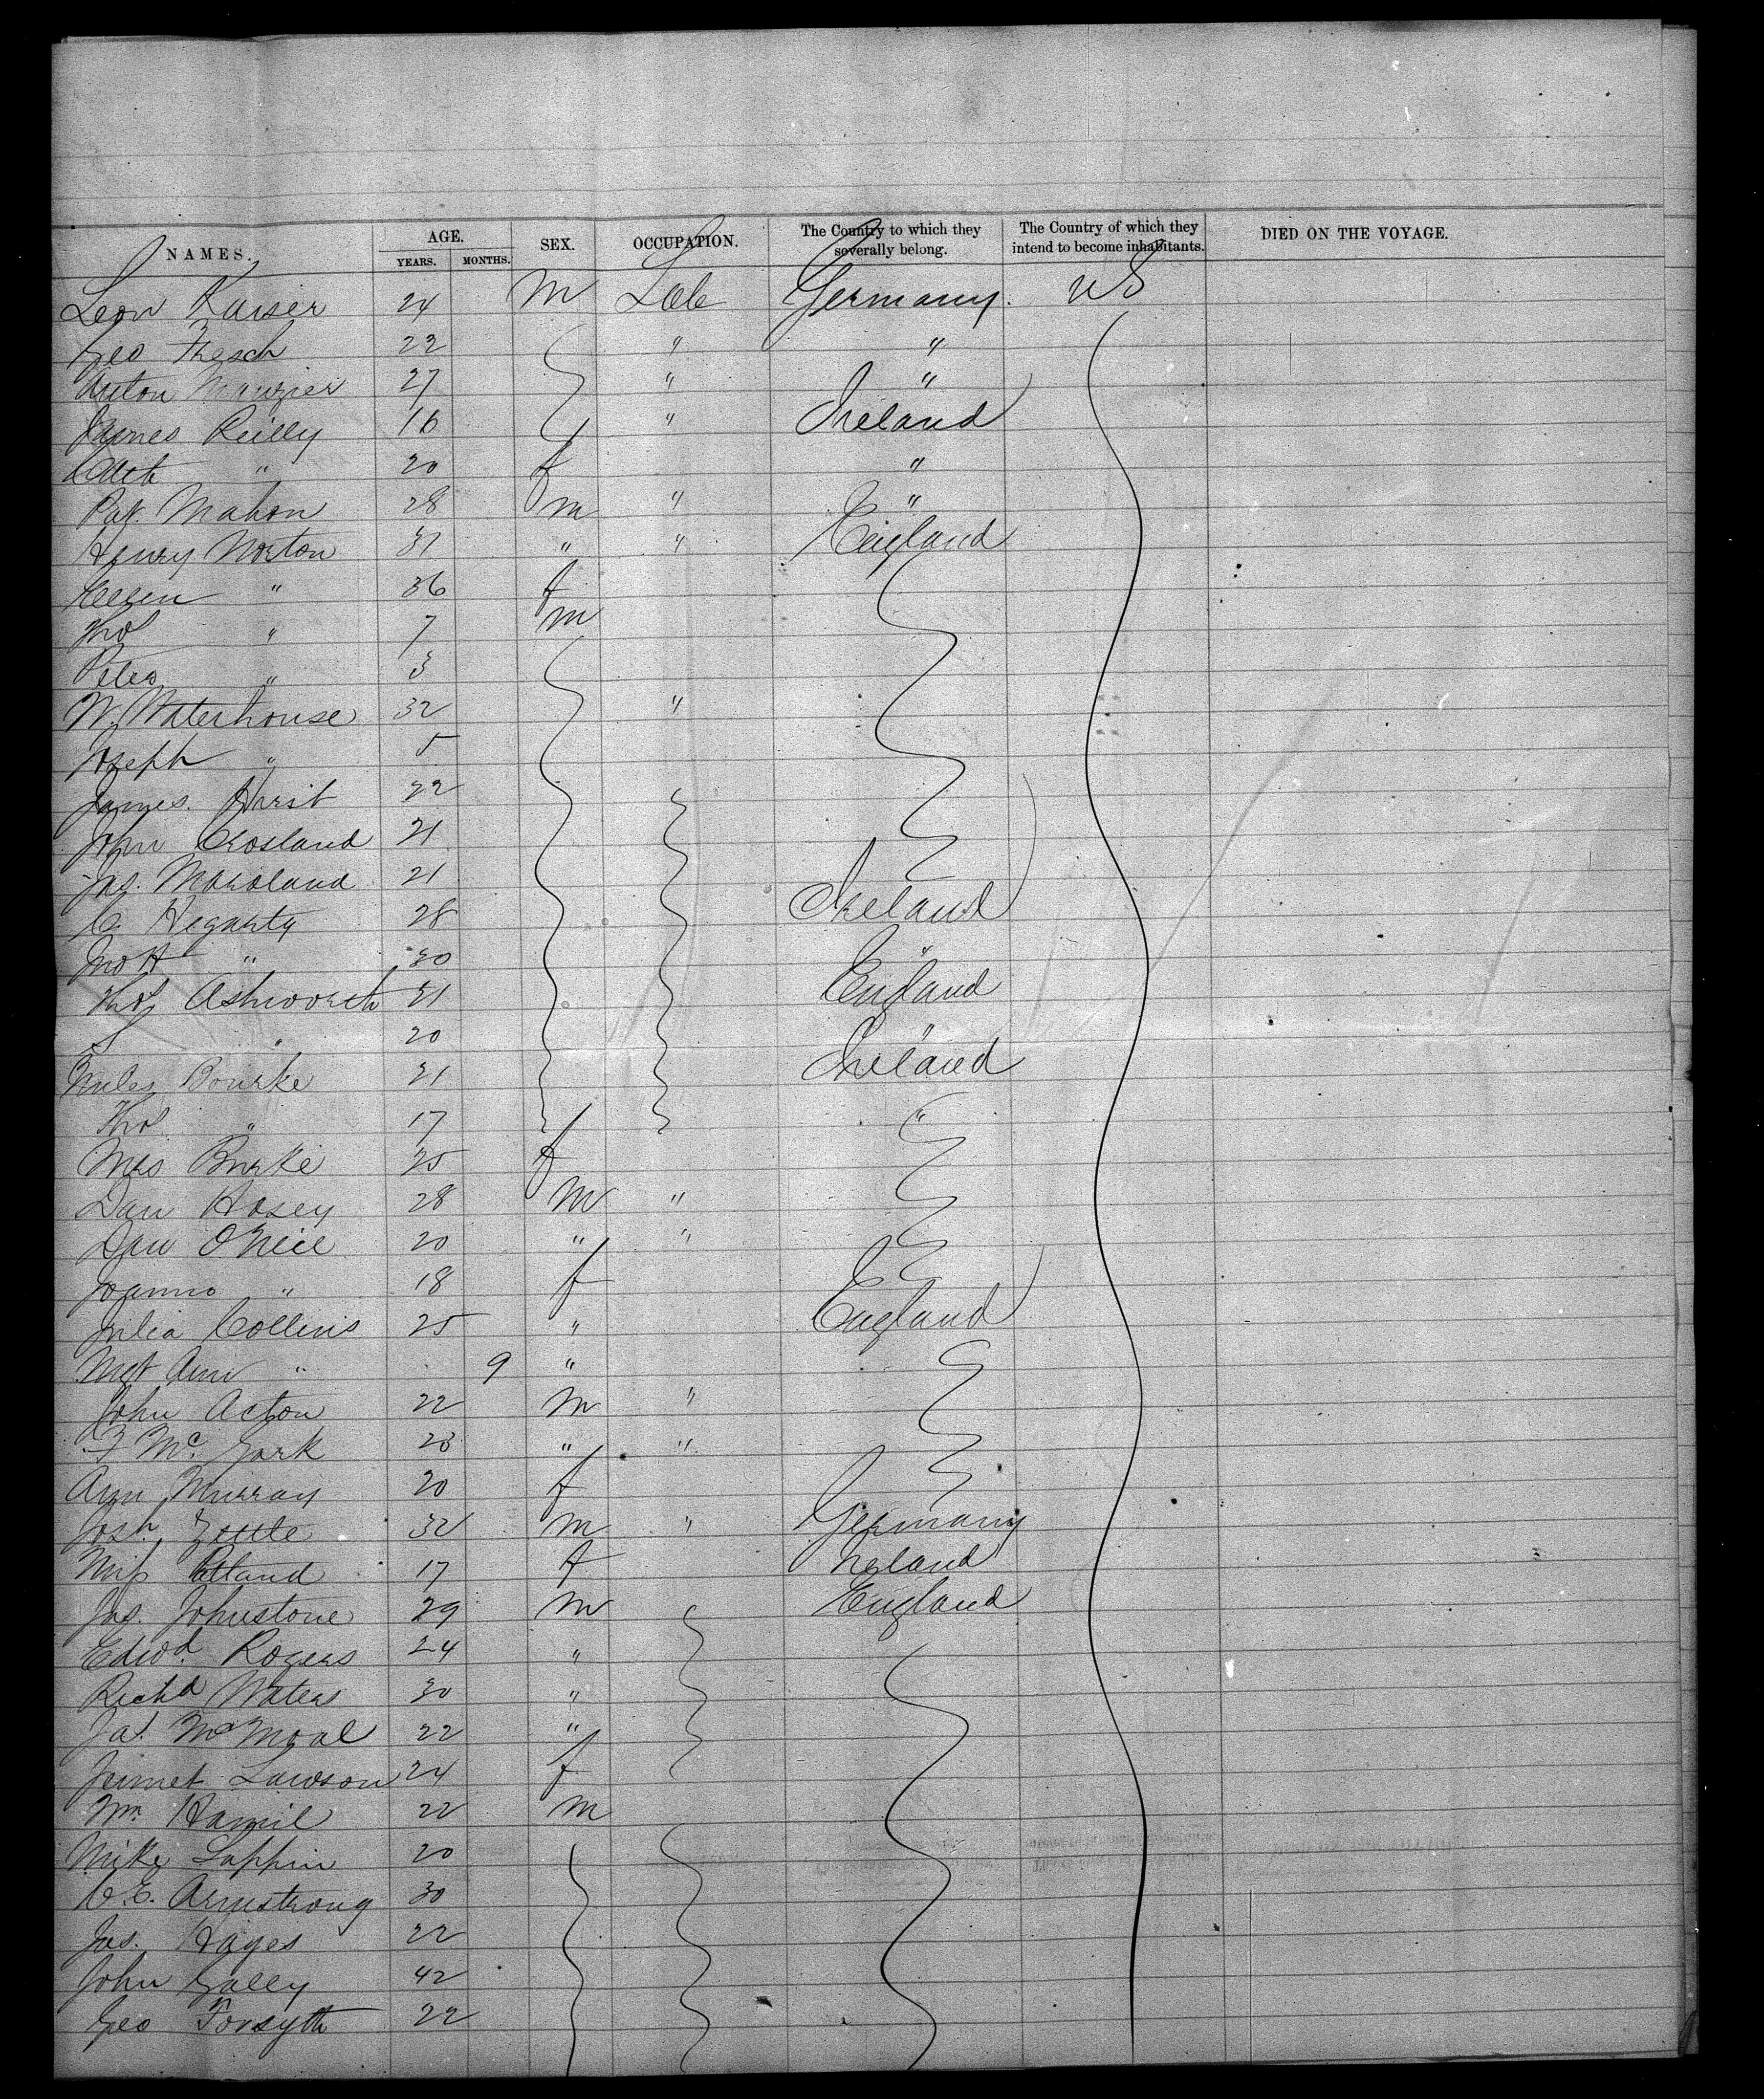 NAMES. AGE. YEARS. MONTHS. SEX. OCCUPATION. The Country to which they severally belong. The Country of which they intend to become inhabitants. DIED ON THE VOYAGE.
Leon Kaiser 24 m Lab Germany. US
Geo Fresch 22 " "
Anton 27 " "
James Reilly 16 " Ireland
20 f "
Pat. Mahon 28 m " "
Henry Norton 31 " " England
Ellen " 36 f
Thos " 7 m
Peter " 3
W. Waterhouse 32 "
Joseph " 5
James. Hirst 22
John Crosland 21
Jas. Moroland 21
C. Hegarty 28 Ireland
Jno H " 30 "
Thos Ashworth 31 England
S " 20 "
Miles Bourke 21 Ireland
Thos " 17 "
Mrs Burke 25 f
Dan Hosey 28 m "
Dan O'Neil 20 " "
" 18 f
Julia Collins 25 " England
Mgt Ann " 9 "
John Acton 22 m "
F Mc. Gark 23 " "
Ann Murray 20 f
Josh. Zettle 32 m " Germany
Miss Rolland 17 f Ireland
Jas. Johnstone 29 m England
Edwd. Rogers 24 "
Richd Waters 30 "
Jas. McMoal 22 "
Lawson 24 f
Wm. Hamil 22 m
Mike Lappin 20
C.E. Armstrong 30
Jas. Hayes 22
John Galley 42
Geo Forsyth 22